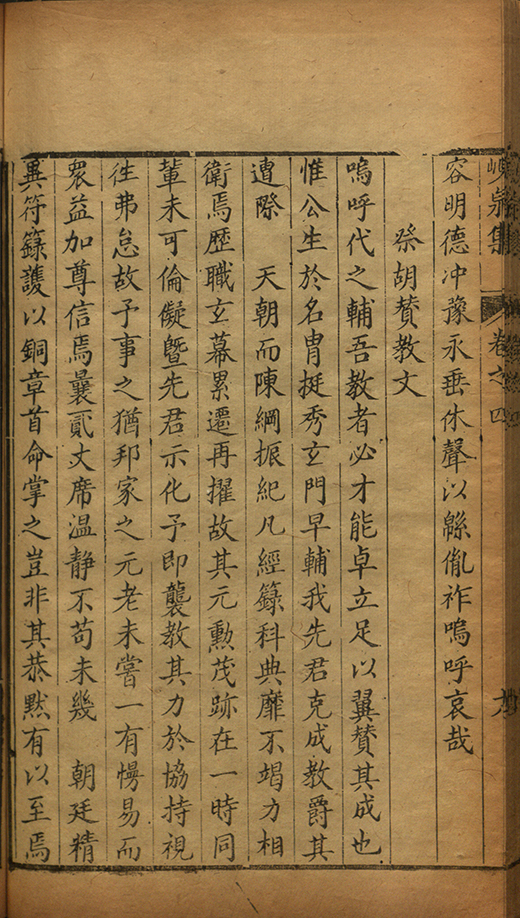 峴泉集 卷之四
容明德冲豫永垂休聲以緜胤祚嗚呼哀哉
祭胡贊教文
嗚呼代之輔吾教者必才能卓立足以翼贊其成也
惟公生於名胄挺秀玄門早輔我先君克成教爵其
遭際 天朝而陳綱振紀凡經籙科典靡不竭力相
衛焉歷職玄幕累遷再擢故其元勳茂跡在一時同
輩未可倫儗暨先君示化予即襲教其力於協持視
徃弗怠故予事之猶邦家之元老未嘗一有慢易而
衆益加尊信焉曩貳丈席温静不苟未幾 朝廷精
異符籙護以銅章首命掌之豈非其恭默有以至焉